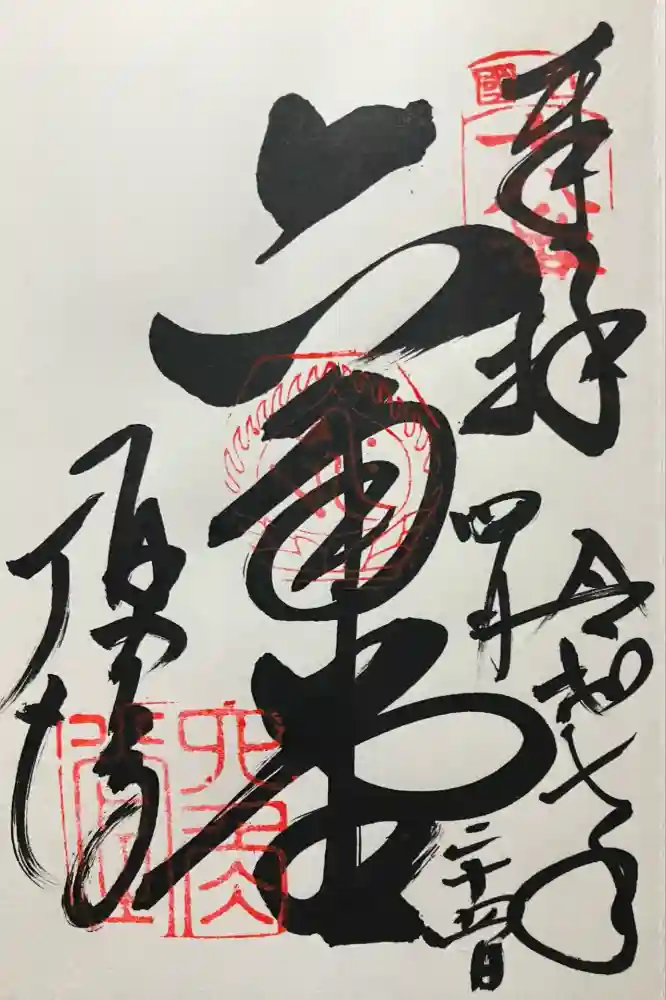 奉拝
令和七年
四月二十四日
六角堂
頂法寺